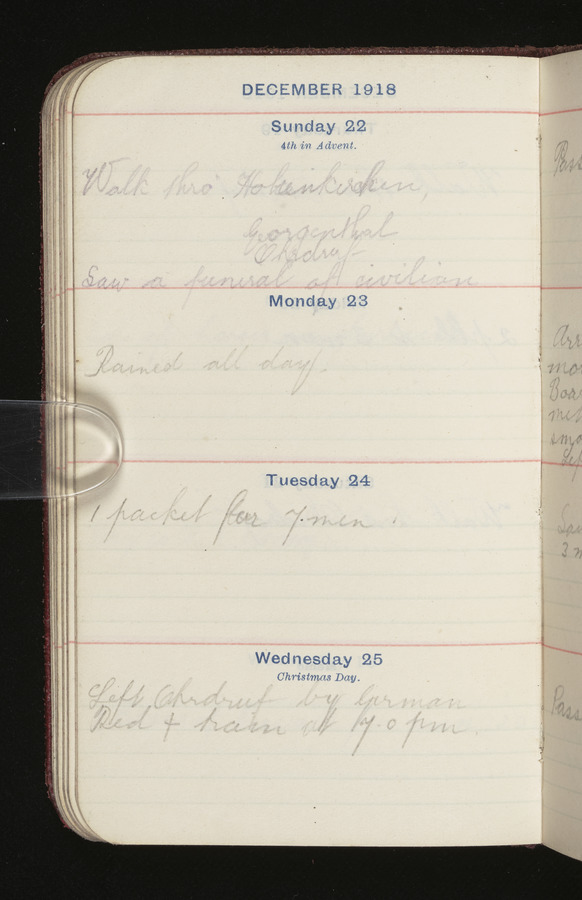 DECEMBER 1918
Sunday 22
4th in Advent.
Walk thro' Hohenkirchen,
Georgenthal
Ohrdruf
Saw a funeral of civilian
Monday 23
Rained all day.
Tuesday 24
1 packet for 7 men.
Wednesday 25
Christmas Day.
Left Ohrdruf by German
Red + train at 7.0 pm.